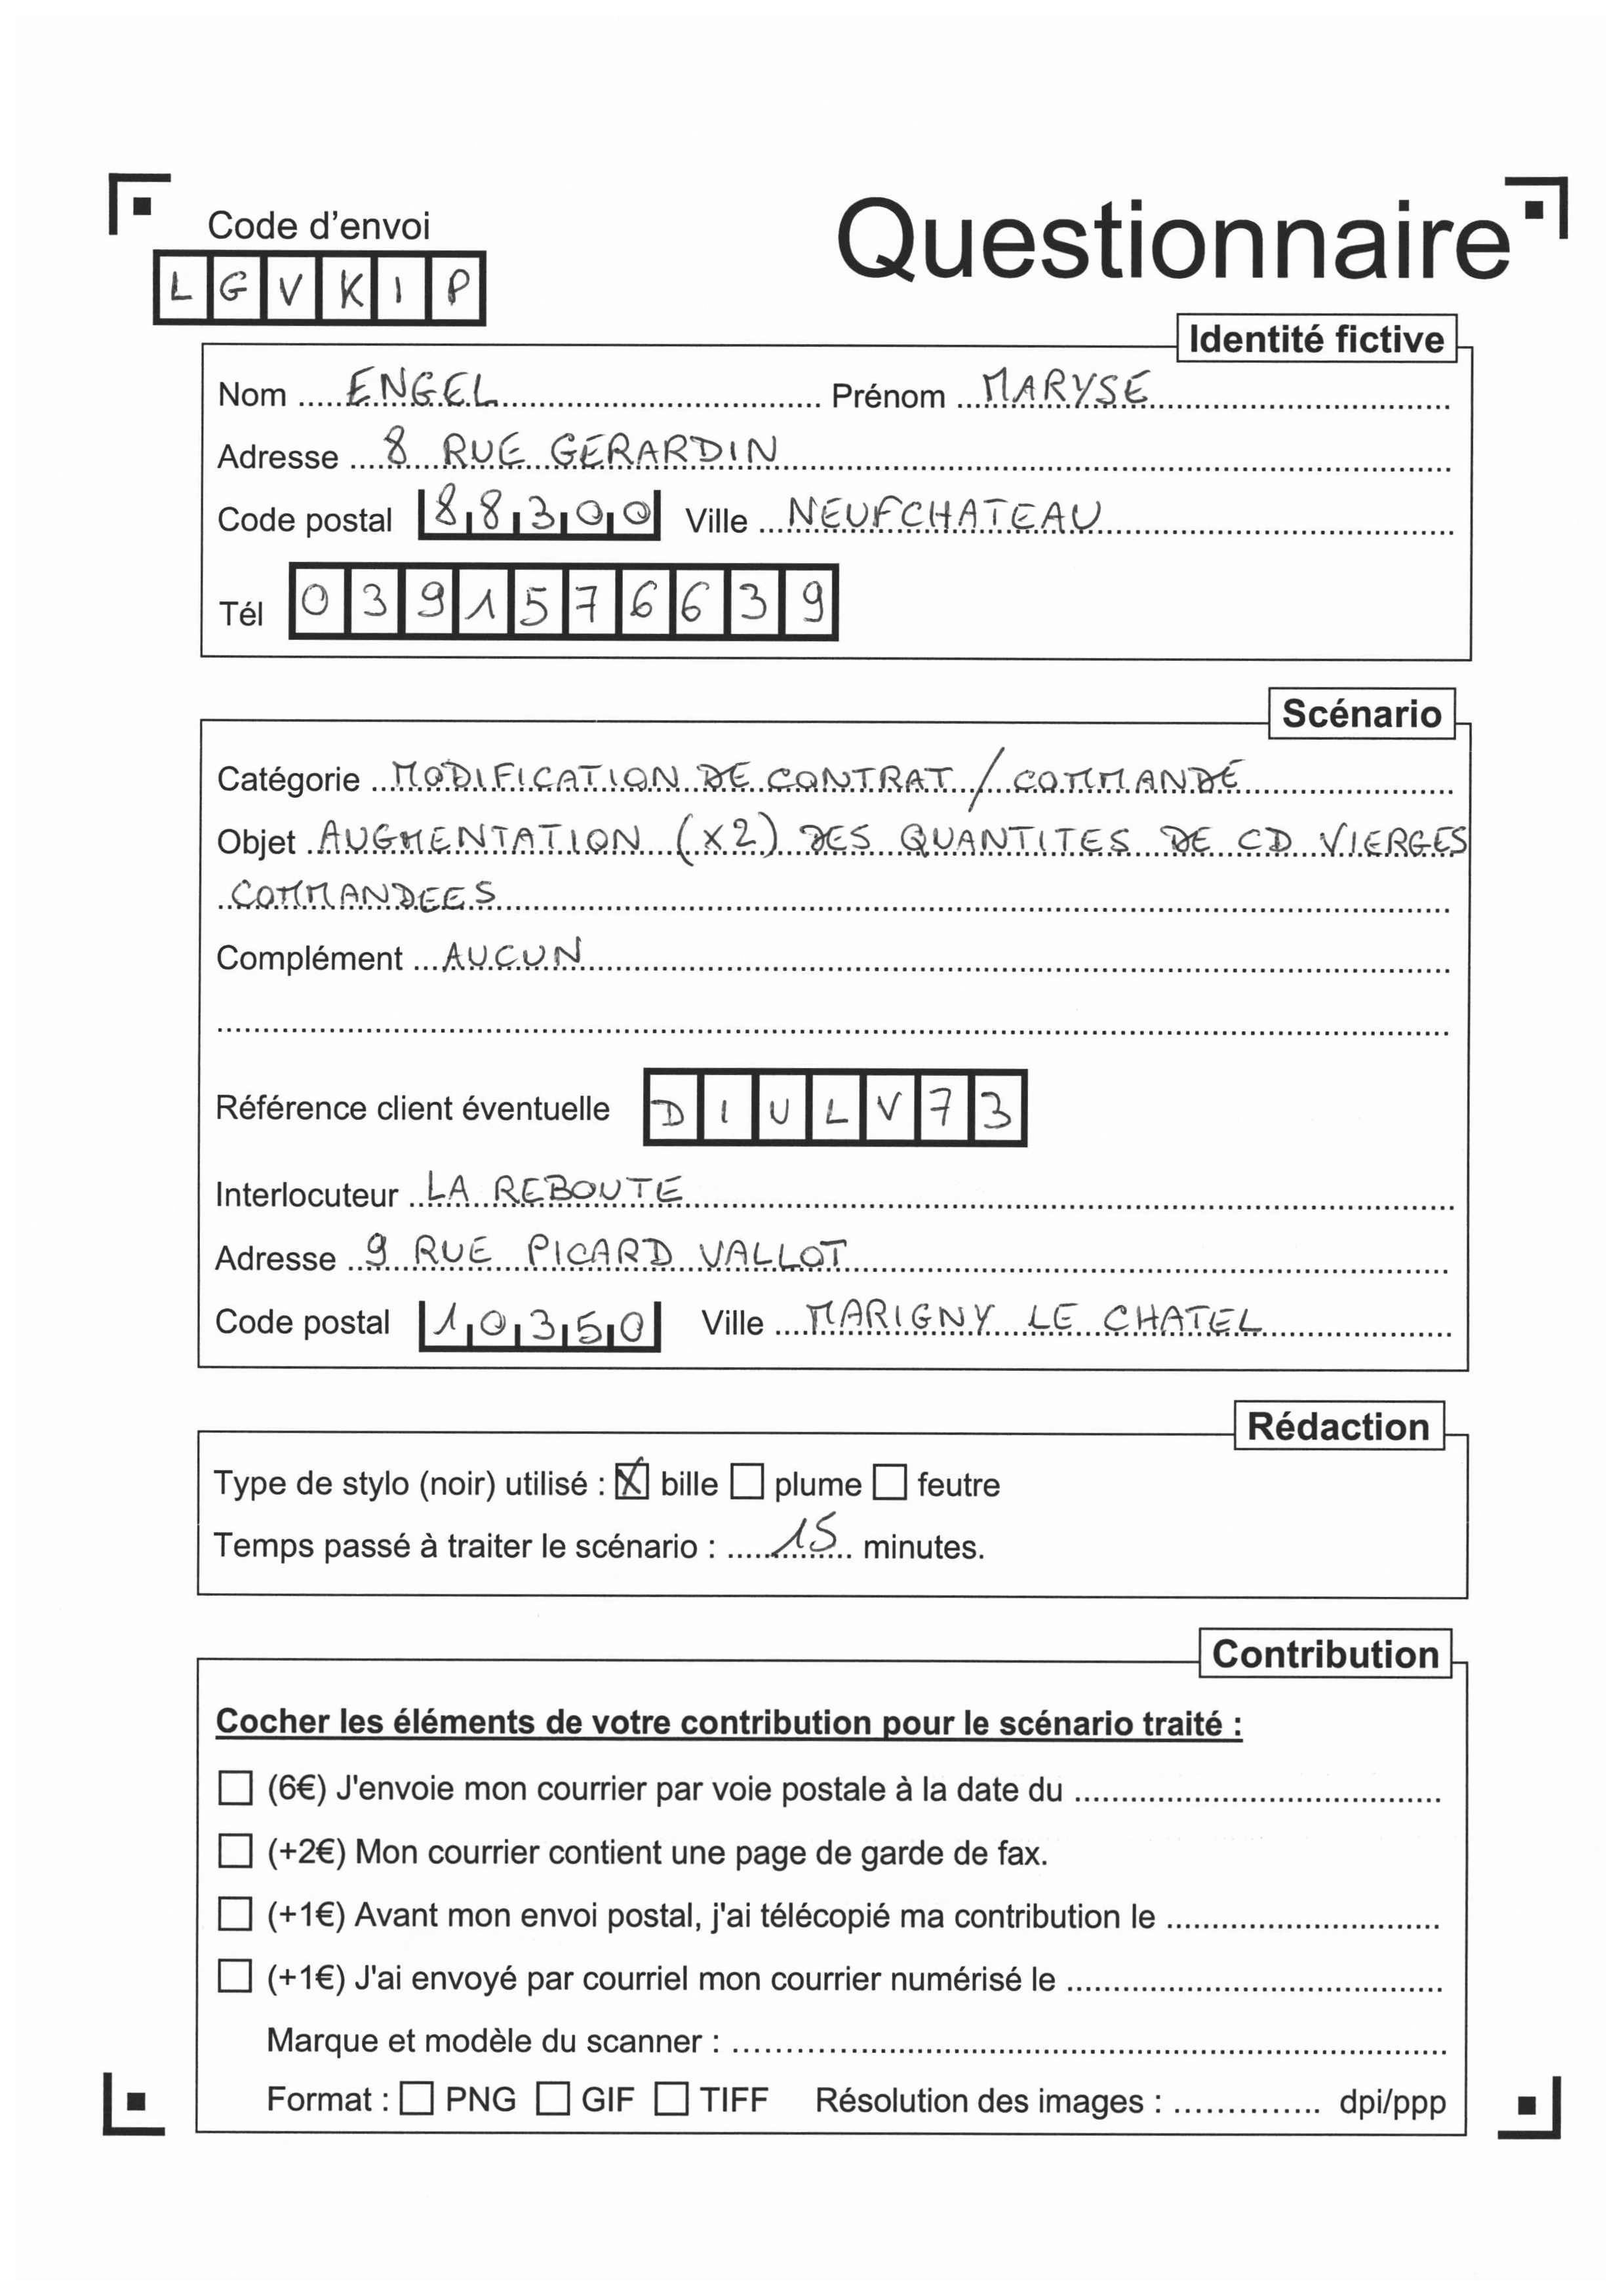 Code d'envoi
Questionnaire
LGVKIP
Identité fictive
Nom ENGEL Prénom MARYSE
Adresse 8 RUE GERARDIN
Code postal 88300 Ville NEUFCHATEAU
Tél 0391576639
Scénario
Catégorie MODIFICATION DE CONTRAT / COMMANDE
Objet AUGMENTATION (X2) DES QUANTITES DE CD VIERGES
COMMANDEES
Complément AUCUN
Référence client éventuelle DIULV73
Interlocuteur LA REBOUTE
Adresse 9 RUE PICARD VALLOT
Code postal 10350 Ville MARIGNY LE CHATEL
Rédaction
Type de stylo (noir) utilisé : ☒ bille ☐ plume ☐ feutre
Temps passé à traiter le scénario : 15 minutes.
Contribution
Cocher les éléments de votre contribution pour le scénario traité :
☐ (6€) J'envoie mon courrier par voie postale à la date du ........
☐ (+2€) Mon courrier contient une page de garde de fax.
☐ (+1€) Avant mon envoi postal, j'ai télécopié ma contribution le ........
☐ (+1€) J'ai envoyé par courriel mon courrier numérisé le ........
Marque et modèle du scanner : ........
Format : ☐ PNG ☐ GIF ☐ TIFF Résolution des images : ........ dpi/ppp